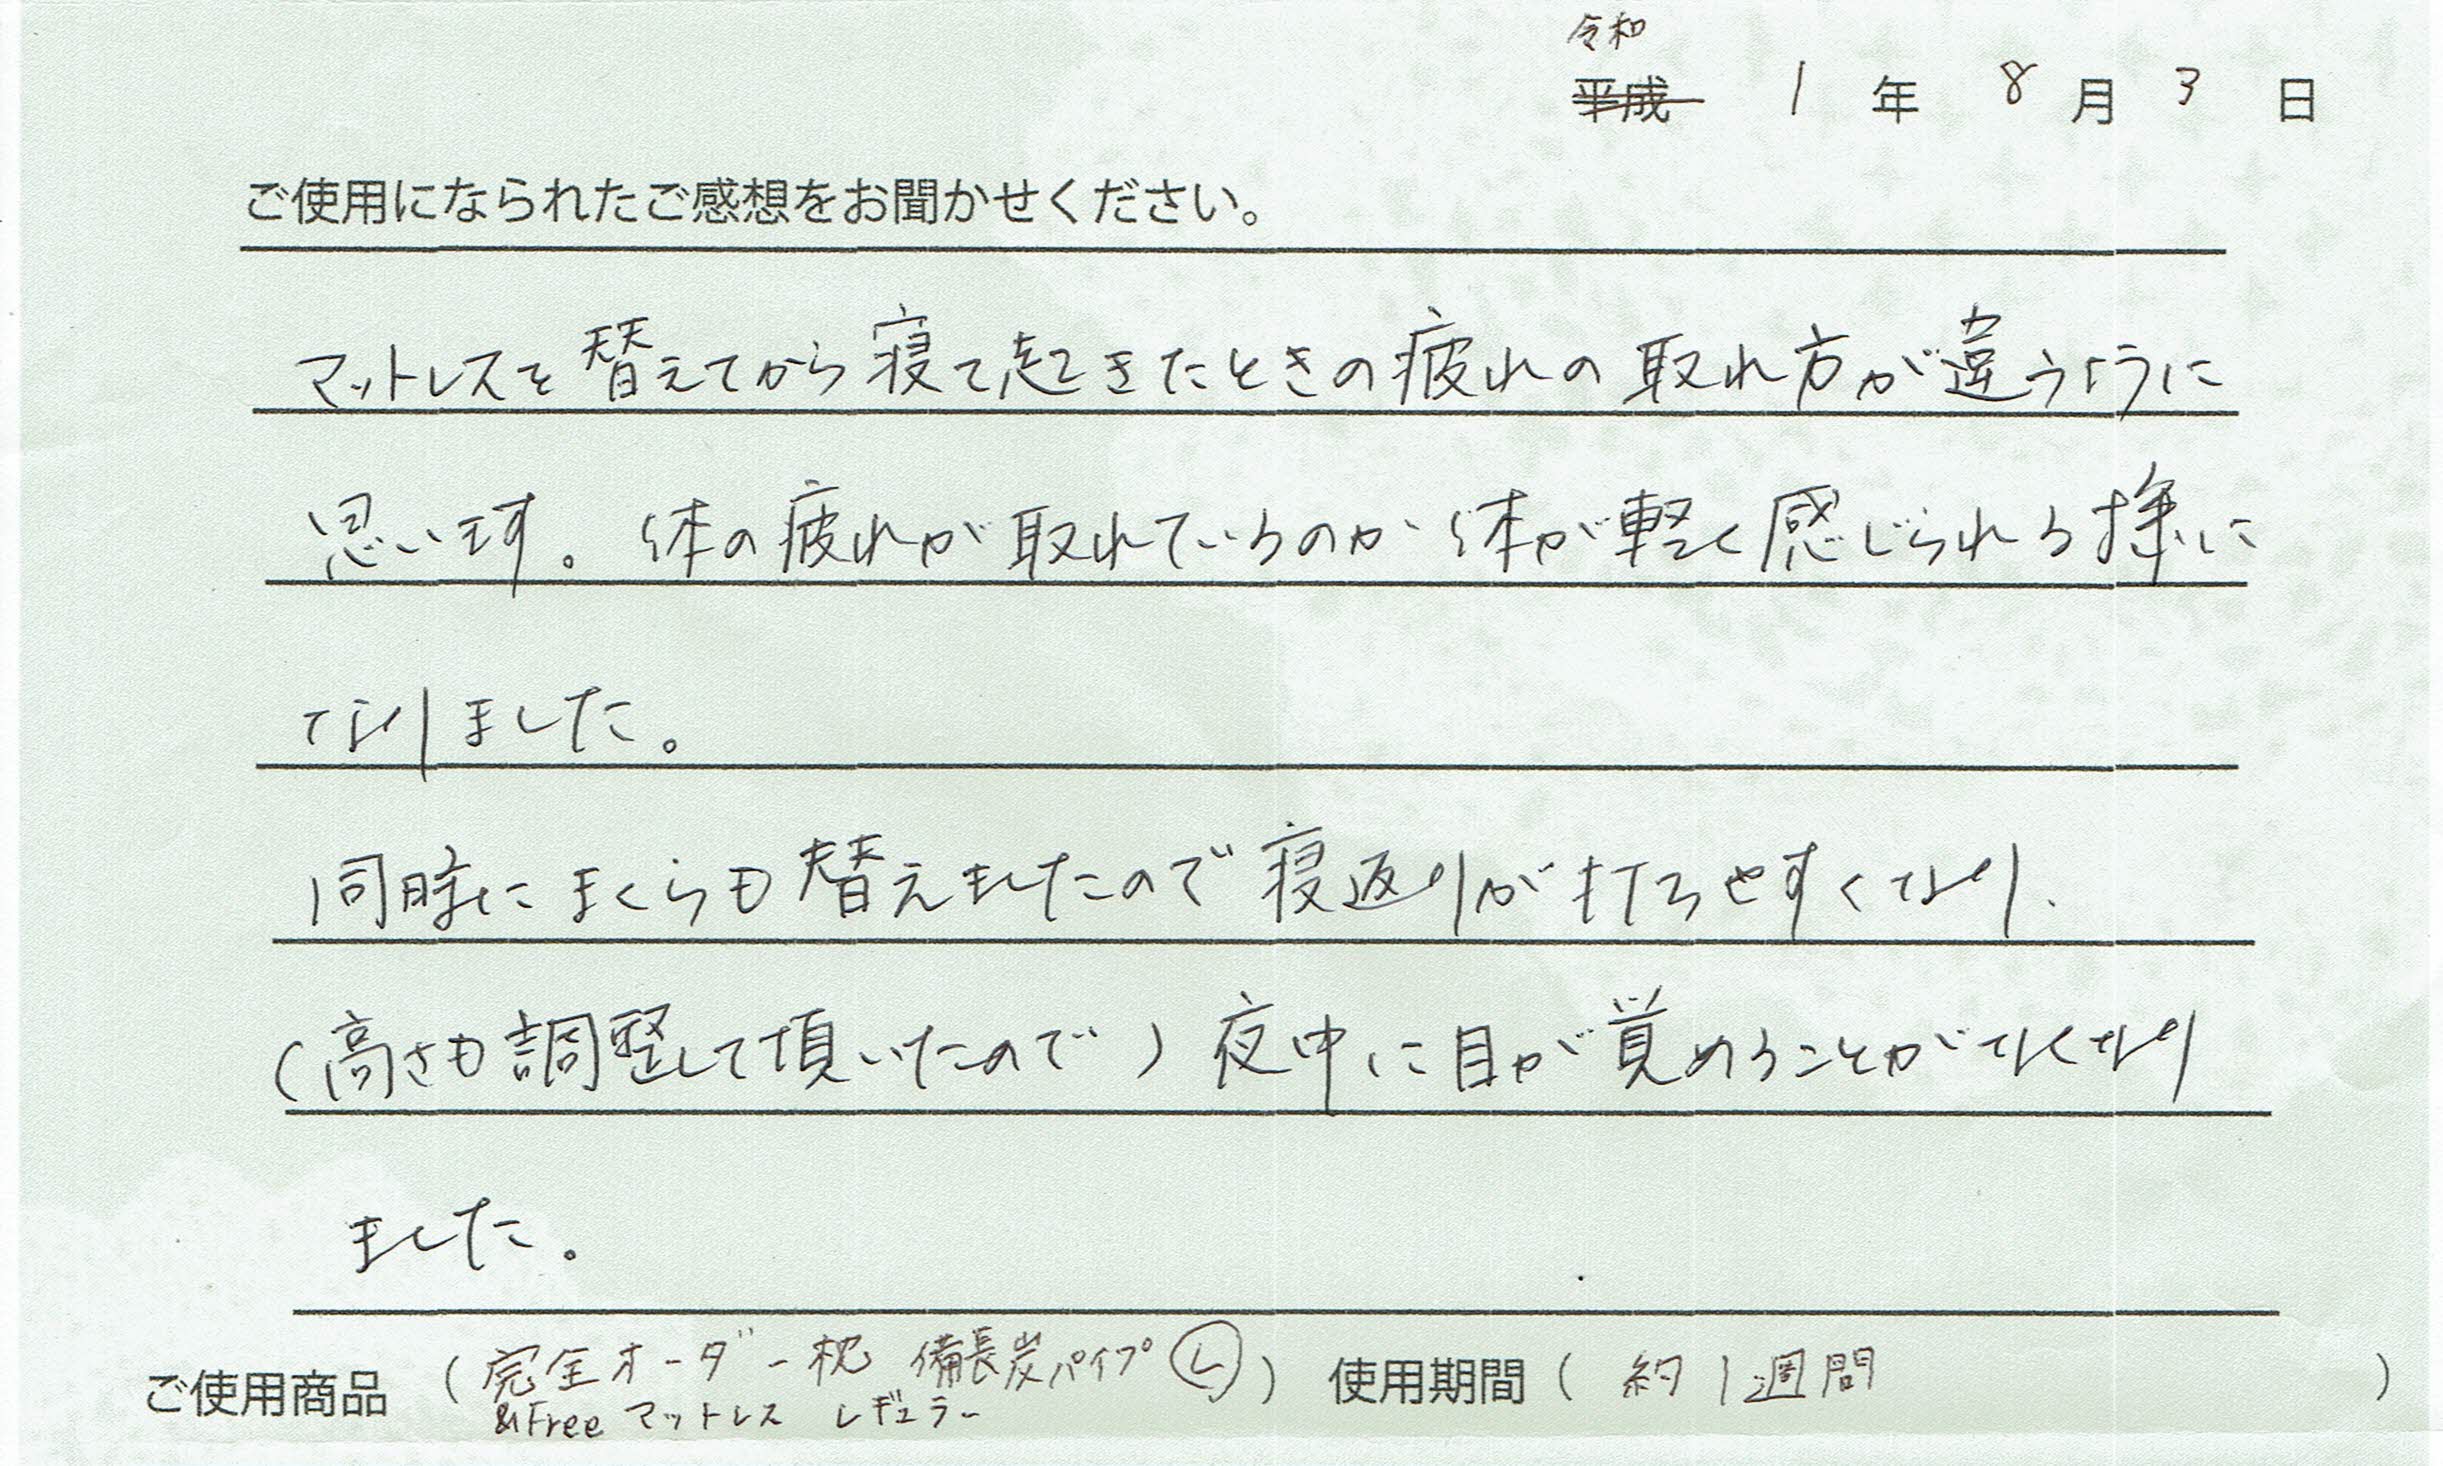 令和
平成 1 年 8 月 3 日
ご使用になられたご感想をお聞かせください。
マットレスを替えてから寝て起きたときの疲れの取れ方が違うように
思います。体の疲れが取れているのか体が軽く感じられる様に
なりました。
同時にまくらも替えましたので寝返りが打ちやすくなり、
(高さも調整して頂いたので)夜中に目が覚めることがなくなり
ました。
ご使用商品 (完全オーダー枕 備長炭パイプ Ⓛ) 使用期間 ( 約1週間 )
&Free マットレス レギュラー